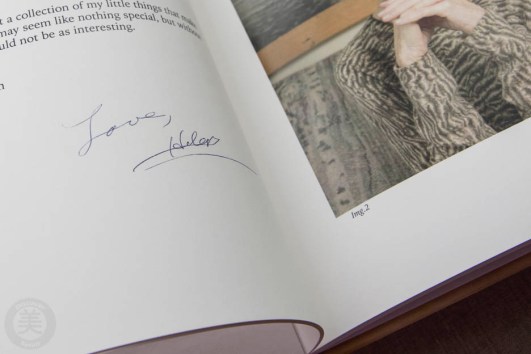 t a collection of my little things that make
may seem like nothing special, but without
uld not be as interesting.
n
Love,
Helen
Img.2
美